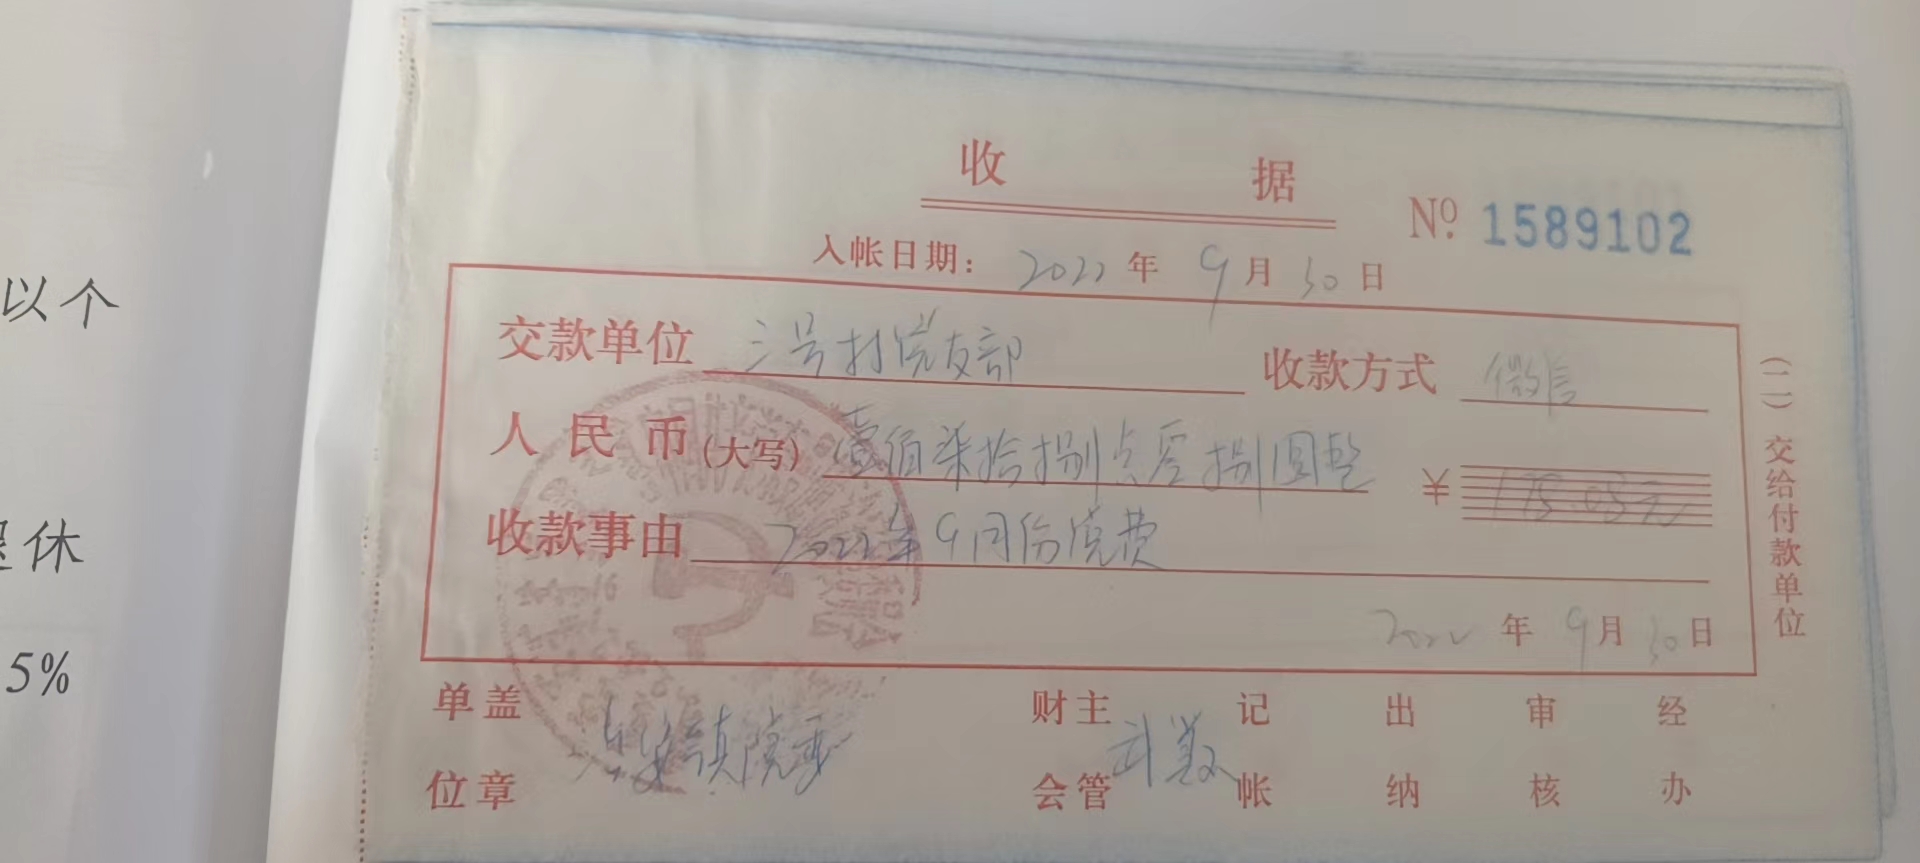 收 据
№ 1589102
入帐日期： 2022 年 9 月 30 日
交款单位 三号村党支部 收款方式 微信
人民币(大写) 壹佰柒拾捌点零捌圆整 ¥ 178.08元
收款事由 2022年9月份党费
2022 年 9月 30日
(二)交给付款单位
单盖 财主 记 出 审 经
位章 镇党委 会管 武 帐 纳 核 办
以个
休
5%